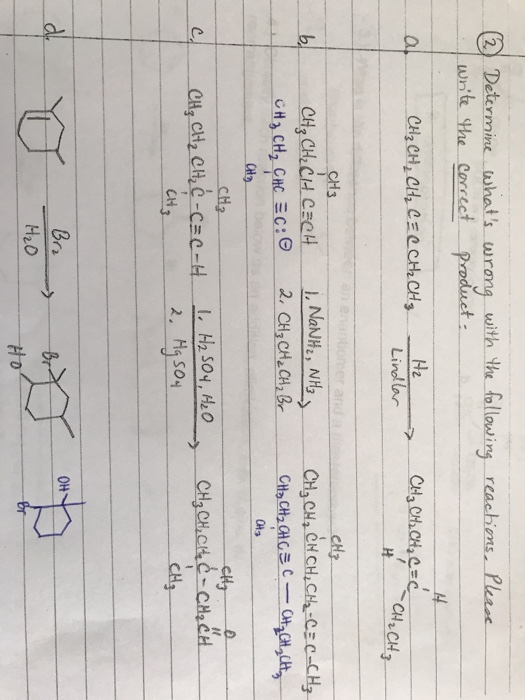 ② Determine what's wrong with the following reactions. Please
write the correct product:
a. CH3CH2CH2C≡CCH2CH3 H2 Lindlar CH3CH2CH2C=C H H CH2CH3
b. CH3
CH3CH2CHC≡CH 1. NaNH2, NH3 2. CH3CH2CH2Br CH3
CH3CH2CHCH2CH2-C≡C-CH3
CH3CH2CHC≡C:⊖ CH3CH2CHC≡C—CH2CH2CH3
CH3 CH3
c. CH3 CH3 O
CH3CH2CH2C-C≡C-H 1. H2SO4, H2O CH3CH2CH2C-CH2CH
CH3 2. HgSO4 CH3
d. Br2 H2O Br HO OH Br